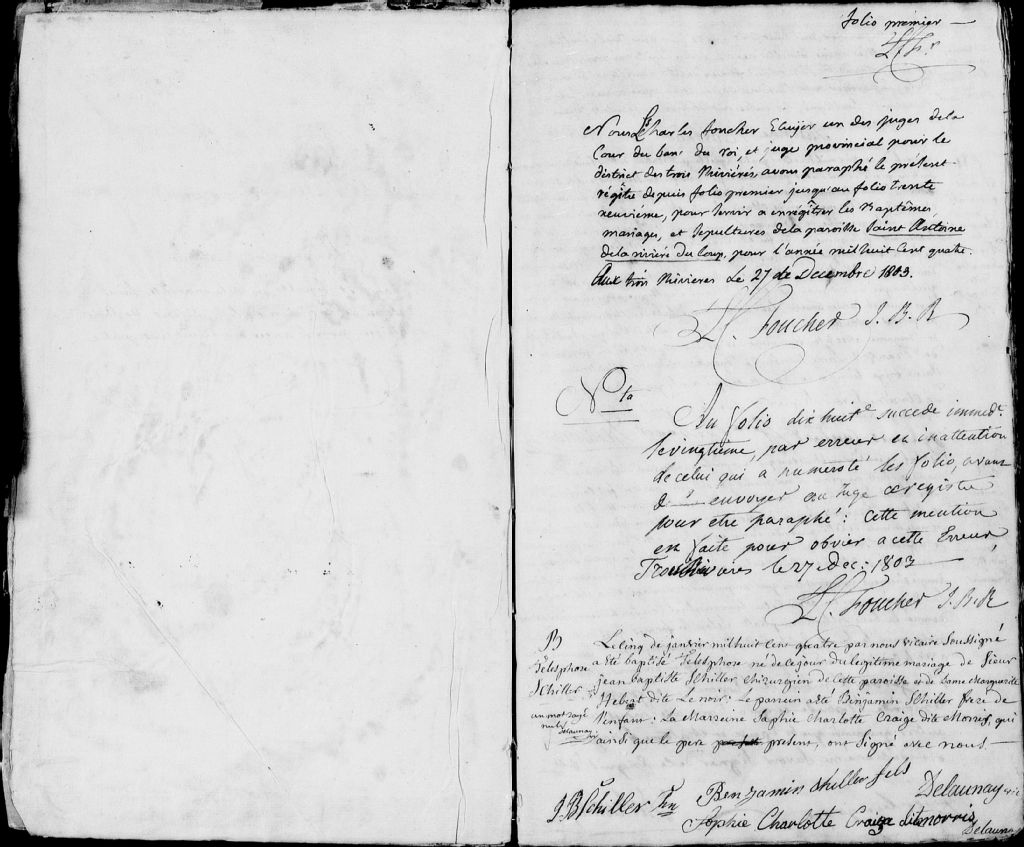 folio premier
Nous Ls Charles foucher Ecuÿer un des juges de la
Cour du banc du roi, et juge provincial pour le
district des trois Rivières, avons paraphé le présent
régître depuis folio premier jusqu'au folio trente
neuvième, pour servir a enrégîtrer les Baptêmes,
mariages, et sepultures de la paroisse Saint Antoine
de la rivière du Loup, pour l'année mil huit Cent quatre.
Aux trois Rivieres Le 27 de Decembre 1803.
LC. Foucher J. B. R
Nota
Au folio dix huite succede immedt
le vingtieme, par erreur en inattention
de celui qui a numeroté les folio, avant
d' envoyer au Juge ce registre
pour etre paraphé: cette mention
en faite pour obvier a cette Erreur,
Trois Rivieres le 27 dec: 1803
LC. Foucher J. B. R
B
Télesphose
Schiller
un mot rayé
nul
Delaunay
Le cinq de janvier mil huit Cent quatre par nous vicaire Soussigné
a été baptisé Télésphose né de le jour du legitime mariage de Sieur
jean baptiste Schiller chirurgien de cette paroisse et de Dame Marguerite
Hebert dite Le noir: Le parrein a été Benjamin Schiller frere de
l'enfant: La Marreine Saphie Charlotte Craige dite Morriss, qui
ainsi que le pere présent, ont Signé avec nous
J B Schiller
Benjamin Shiller fils
Delaunay
Sophie Charlotte Craige dite morris
Delaunay